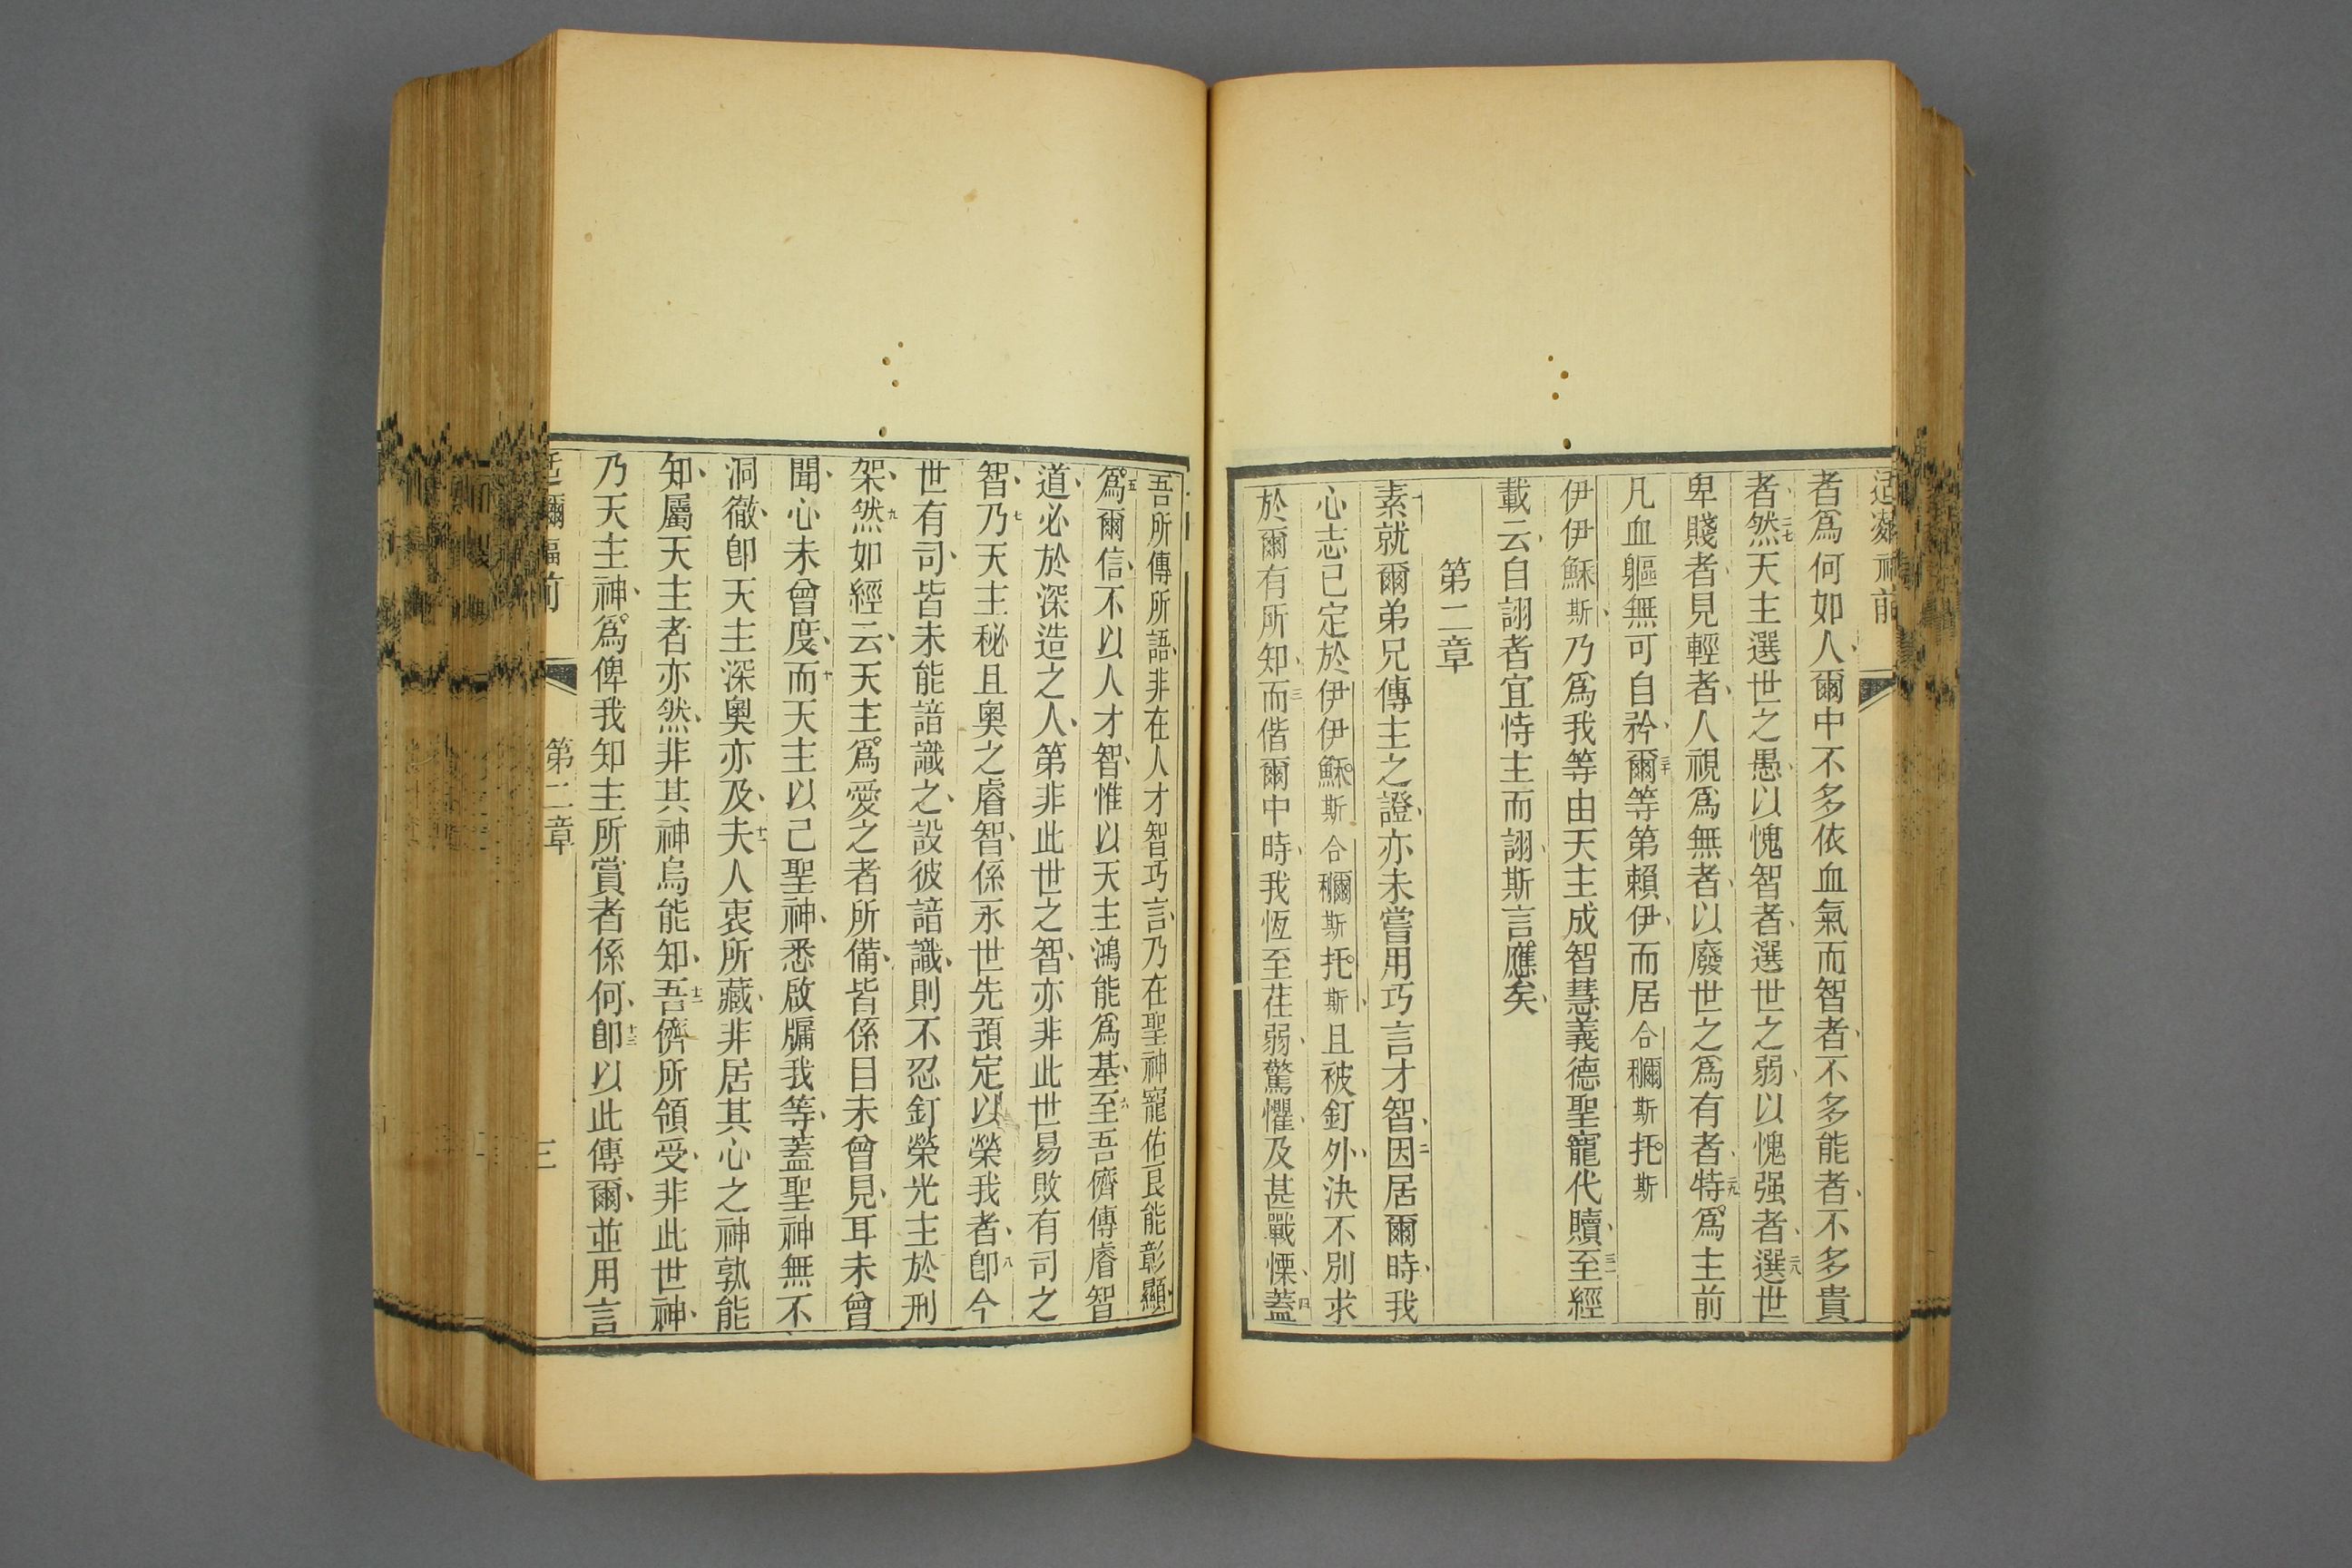 者爲何如人爾中不多依血氣而智者不多能者不多貴
者然二七天主選世之愚以愧智者選世之弱以愧强者選二八世
卑賤者見輕者人視爲無者以廢世之爲有者特二九爲主前
凡血軀無可自矜爾三十等第賴伊而居合穪斯托斯
伊伊穌斯乃爲我等由天主成智慧義德聖寵代贖至三一經
載云自詡者宜恃主而詡斯言應矣
第二章
素一就爾弟兄傳主之證亦未嘗用巧言才智因二居爾時我
心志已定於伊伊穌斯合穪斯托斯且被釘外決不別求
於爾有所知而三偕爾中時我恆至荏弱驚懼及甚戰慄蓋四
吾所傳所語非在人才智巧言乃在聖神寵佑良能彰顯
爲五爾信不以人才智惟以天主鴻能爲基至六吾儕傳睿智
道必於深造之人第非此世之智亦非此世易敗有司之
智乃七天主秘且奧之睿智係永世先預定以榮我者卽八今
世有司皆未能諳識之設彼諳識則不忍釘榮光主於刑
架然九如經云天主爲愛之者所備皆係目未曾見耳未曾
聞心未曾度而十天主以己聖神悉啟牖我等蓋聖神無不
洞徹卽天主深奧亦及夫十一人衷所藏非居其心之神孰能
知屬天主者亦然非其神烏能知吾十二儕所領受非此世神
乃天主神爲俾我知主所賞者係何卽十三以此傳爾並用言
第二章
三